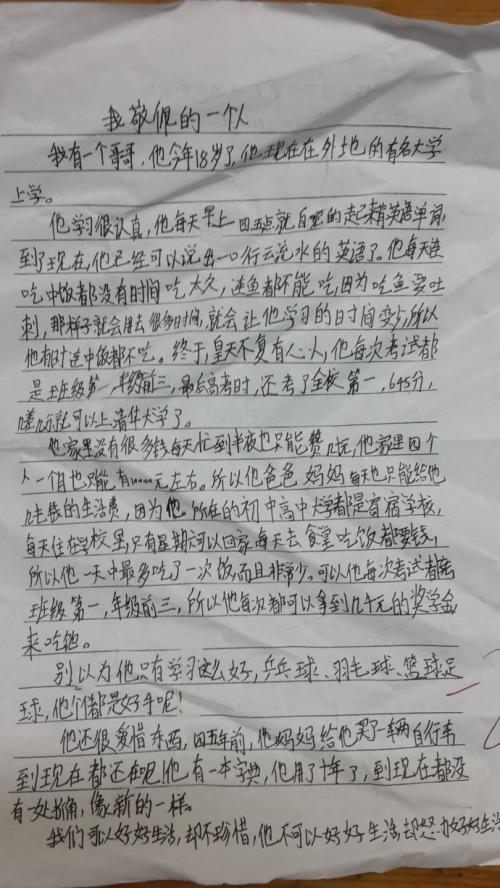 我敬佩的一个人
我有一个哥哥,他今年18岁了,他现在在外地的有名大学
上学。
他学习很认真,他每天早上四五点就自觉的起床背英语单词,
到了现在,他已经可以说出一口行云流水的英语了。他每天连
吃中饭都没有时间吃太久,连鱼都不能吃,因为吃鱼要吐
刺,那样子就会用去很多时间,就会让他学习的日时间变少,所以
他有时连中饭都不吃。终于,皇天不复有心人,他每次考试都
是班级第一,年级前三,最后高考时,还考了全校第一,645分,
差几分就可以上清华大学了。
他家里没有很多钱每天忙到半夜也只能赞几元,他家里四个
人一个月也只能有10000元左右。所以他爸爸妈妈每天也只能给他
几走钱的生活费,因为他所在的初中高中大学都是寄宿学校,
每天住在学校里,只有星期天可以回家,每天去食堂吃饭都要钱,
所以他一天中最多吃了一次饭,而且非常少。可以他每次考试都
班级第一,年级前三,所以他每次都可以拿到几千元的奖学金
来吃饱。
别以为他只有学习这么好,乒乓球、羽毛球、篮球足
球,他个个都是好手呢!
他还很爱惜东西,四五年前,他妈妈给他买了一辆自行车
到现在都还在呢!他有一本字典,他用了十年了,到现在都没
有一处折角,像新的一样。
我们可以好好生活,却不珍惜,他不可以好好生活却努力好好生活